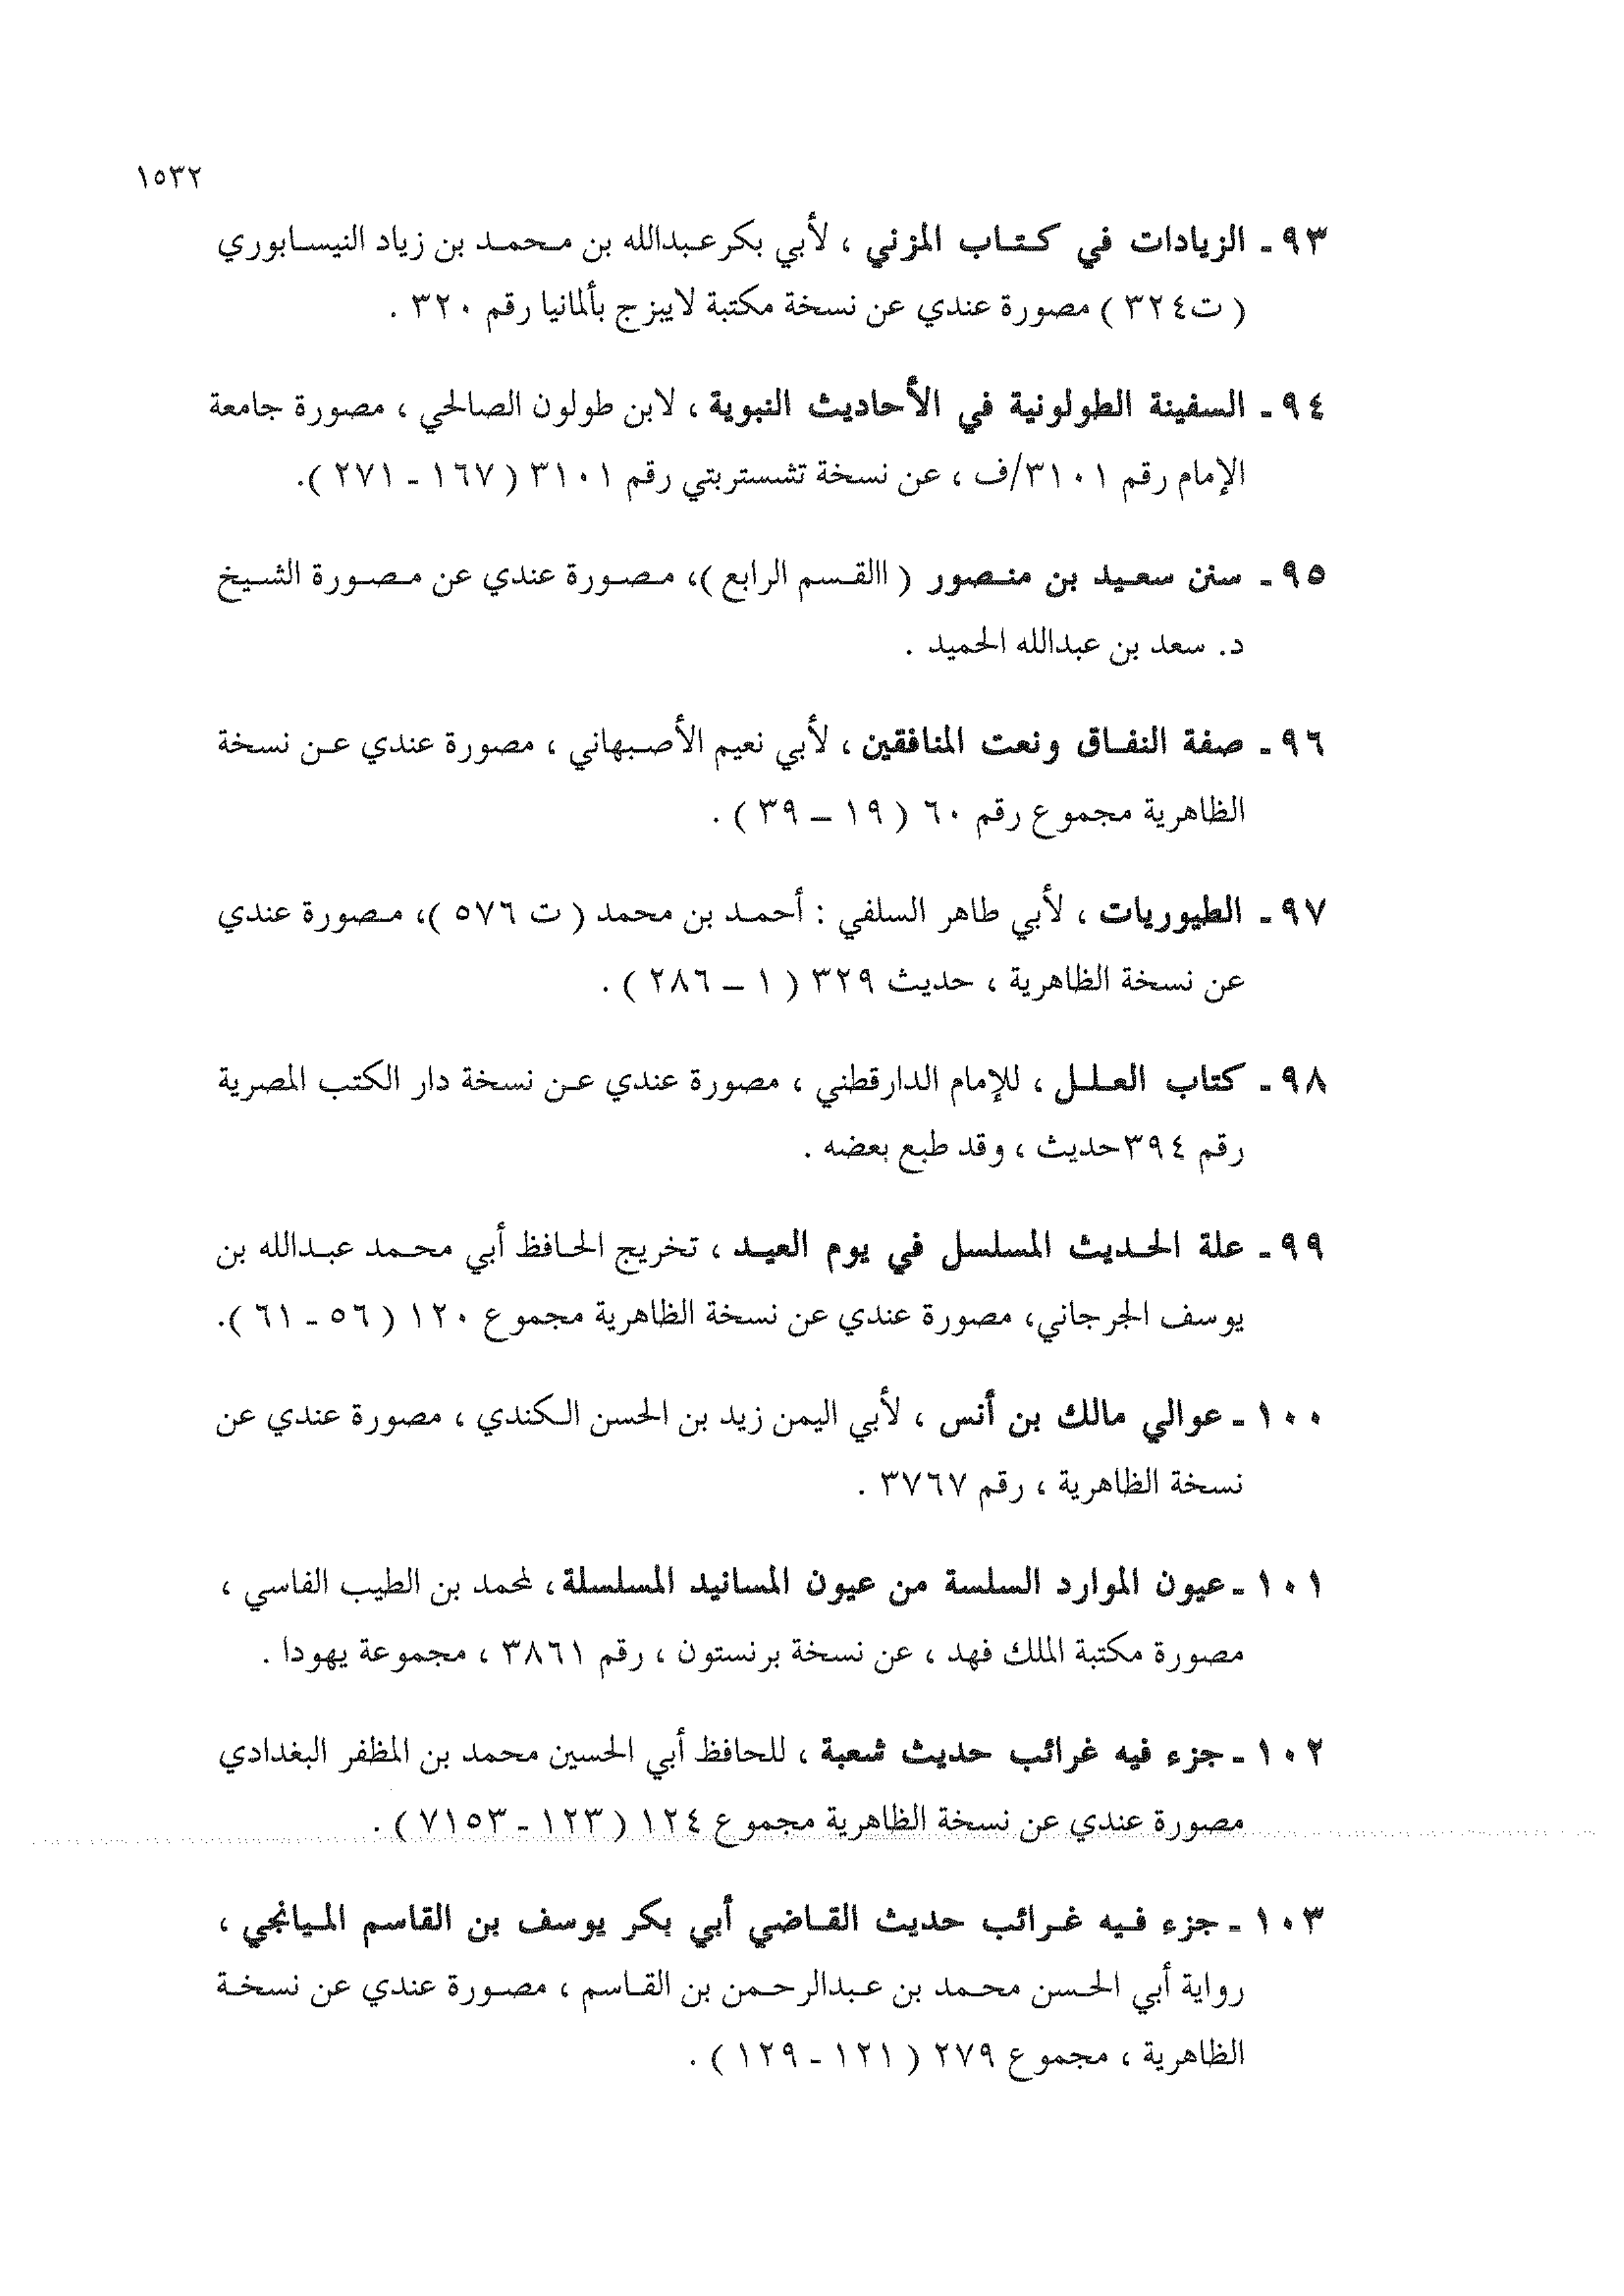 ١٥٣٢
٩٣ـ الزيادات في كتاب المزني ، لأبي بكرعبدالله بن محمد بن زياد النيسابوري
( ت٣٢٤ ) مصورة عندي عن نسخة مكتبة لايبزج بألمانيا رقم ٣٢٠ .
٩٤ـ السفينة الطولونية في الأحاديث النبوية ، لابن طولون الصالحي ، مصورة جامعة
الإمام رقم ٣١٠١/ف ، عن نسخة تشستربتي رقم ٣١٠١ ( ١٦٧ ـ ٢٧١ ).
٩٥ـ سنن سعيد بن منصور ( االقسم الرابع )، مصورة عندي عن مصورة الشيخ
د. سعد بن عبدالله الحميد .
٩٦ـ صفة النفاق ونعت المنافقين ، لأبي نعيم الأصبهاني ، مصورة عندي عن نسخة
الظاهرية مجموع رقم ٦٠ ( ١٩ – ٣٩ ) .
٩٧ـ الطيوريات ، لأبي طاهر السلفي : أحمد بن محمد ( ت ٥٧٦ )، مصورة عندي
عن نسخة الظاهرية ، حديث ٣٢٩ ( ١ – ٢٨٦ ) .
٩٨ـ كتاب العلل ، للإمام الدارقطني ، مصورة عندي عن نسخة دار الكتب المصرية
رقم ٣٩٤حديث ، وقد طبع بعضه .
٩٩ـ علة الحديث المسلسل في يوم العيد ، تخريج الحافظ أبي محمد عبدالله بن
يوسف الجرجاني، مصورة عندي عن نسخة الظاهرية مجموع ١٢٠ ( ٥٦ ـ ٦١ ).
١٠٠ـ عوالي مالك بن أنس ، لأبي اليمن زيد بن الحسن الكندي ، مصورة عندي عن
نسخة الظاهرية ، رقم ٣٧٦٧ .
١٠١ـ عيون الموارد السلسة من عيون المسانيد المسلسلة، لمحمد بن الطيب الفاسي ،
مصورة مكتبة الملك فهد ، عن نسخة برنستون ، رقم ٣٨٦١ ، مجموعة يهودا .
١٠٢ـ جزء فيه غرائب حديث شعبة ، للحافظ أبي الحسين محمد بن المظفر البغدادي
مصورة عندي عن نسخة الظاهرية مجموع ١٢٤ ( ١٢٣ ـ ٧١٥٣ ) .
١٠٣ـ جزء فيه غرائب حديث القاضي أبي بكر يوسف بن القاسم الميانجي ،
رواية أبي الحسن محمد بن عبدالرحمن بن القاسم ، مصورة عندي عن نسخة
الظاهرية ، مجموع ٢٧٩ ( ١٢١ ـ ١٢٩ ) .